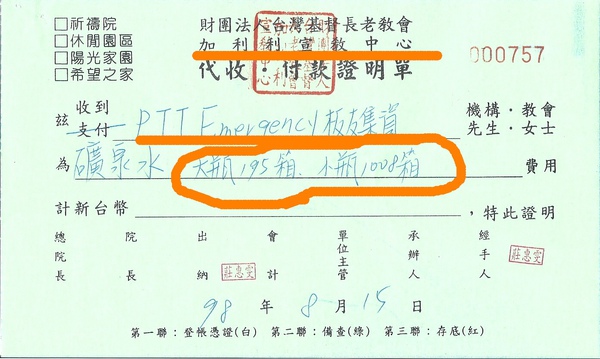 □祈禱院
□休閒園區
□陽光家園
□希望之家
財團法人台灣基督長老教會
加利利宣教中心
代收·付款證明單
000757
茲收到 PTT Emergency板友集資 機構·教會
支付 先生·女士
為礦泉水 大瓶195箱、小瓶1008箱 費用
計新台幣 ,特此證明
總院長 院長 出納 會計 單位主管 承辦人 經手人
莊忠雯 莊忠雯
98 年 8 月 15 日
第一聯:登帳憑證(白) 第二聯:備查(綠) 第三聯:存底(紅)